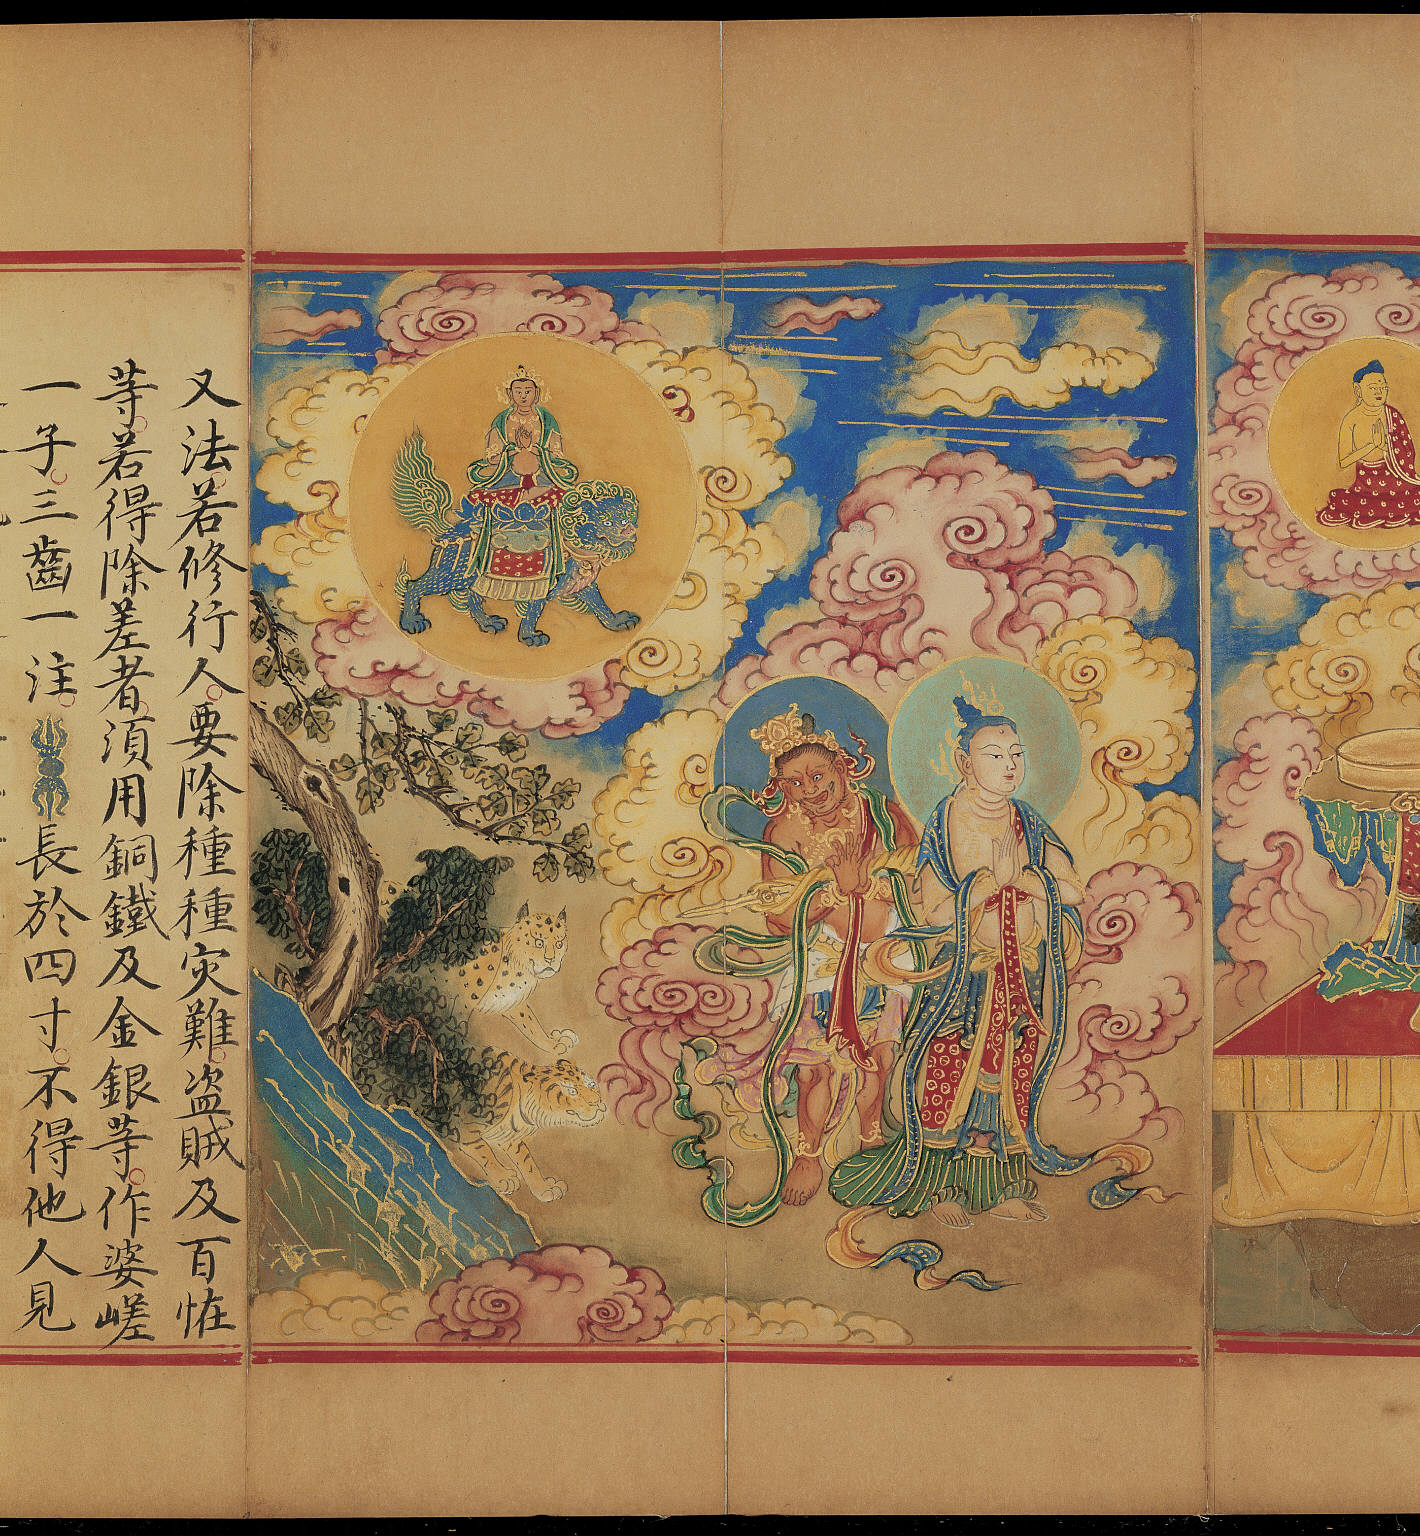 又法若修行人要除種種灾難盗賊及百恠
等若得除差者須用銅鐵及金銀等作婆嵯
一子三齒一注長於四寸不得他人見